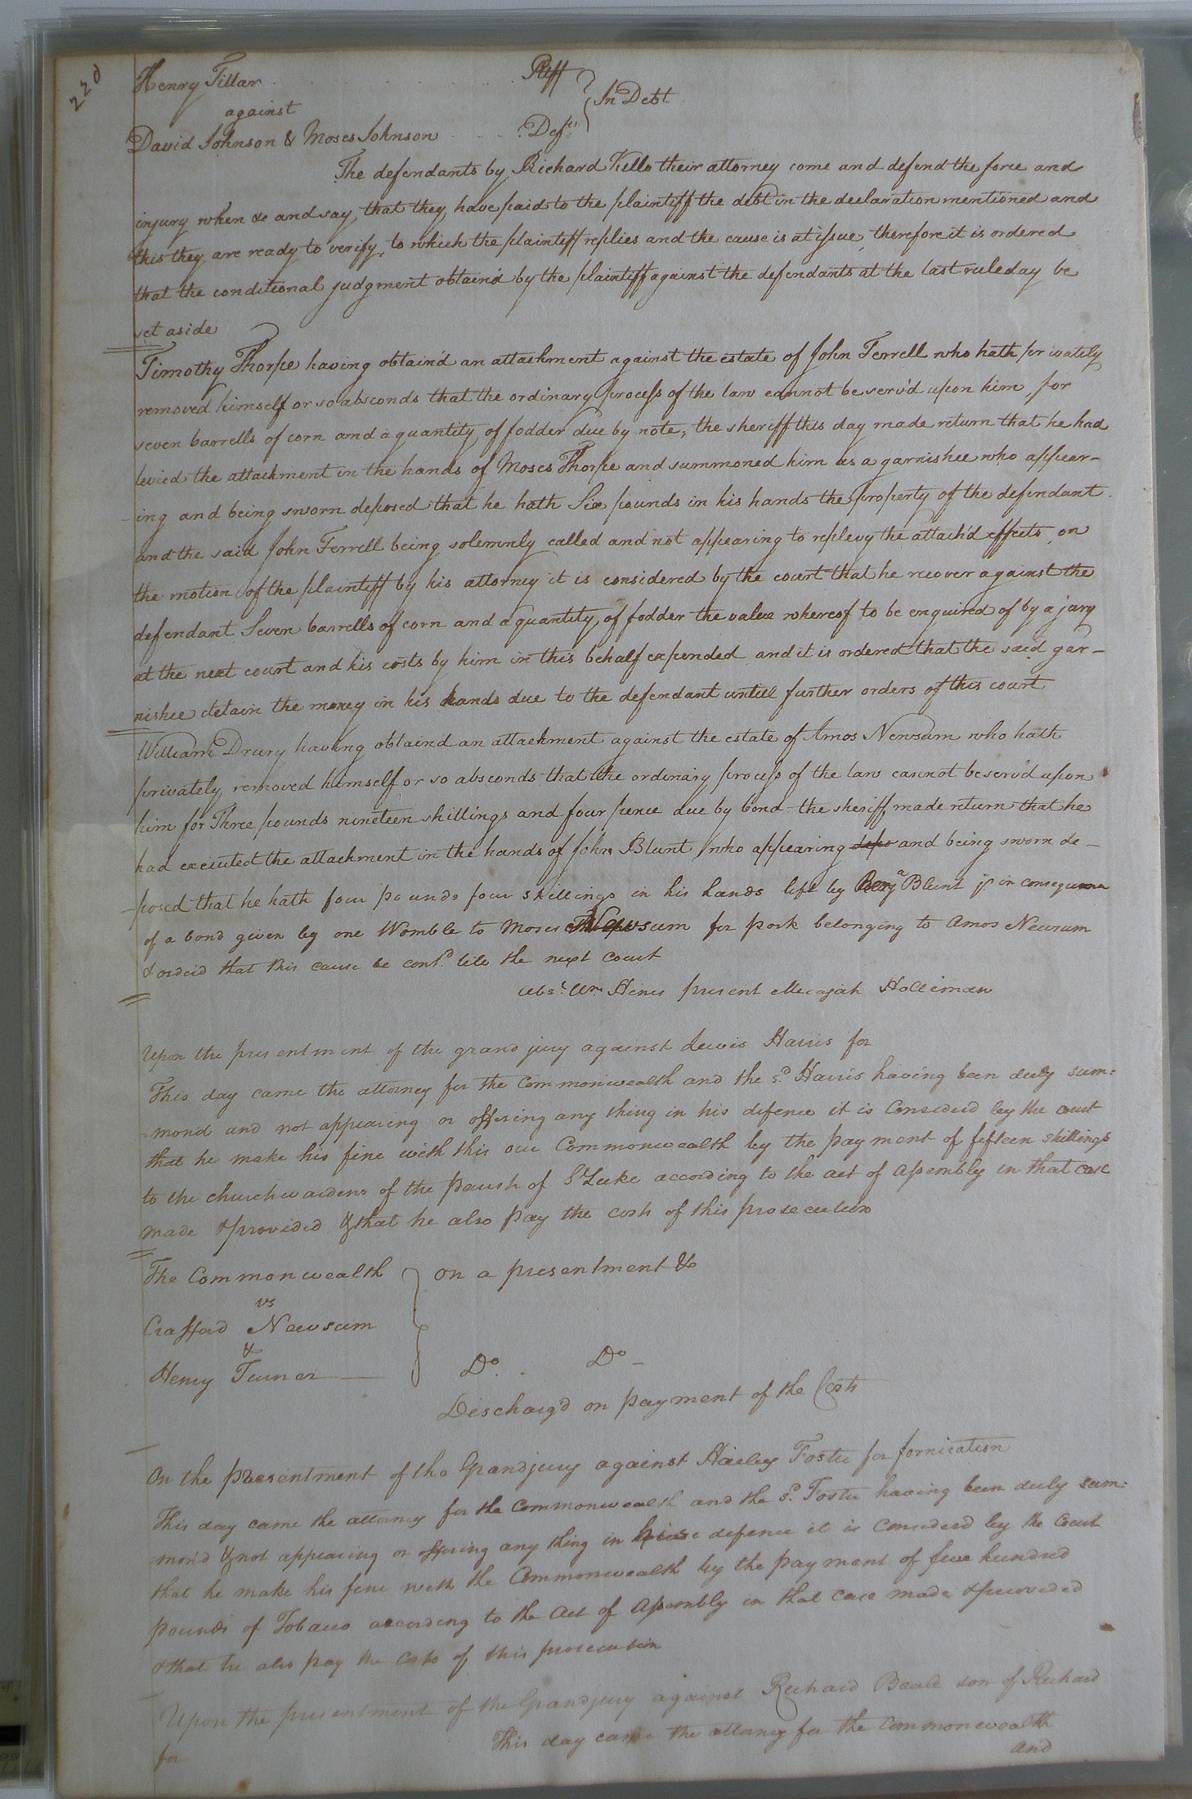 220
Henry Tillar Pltff
against } In Debt
David Johnson & Moses Johnson Defts
The defendants by Richard Kello their attorney come and defend the force and
injury when &c and say that they have paid to the plaintiff the debt in the declaration mentioned and
this they are ready to verify, to which the plaintiff replies and the cause is at issue, therefore it is ordered
that the conditional judgment obtain'd by the plaintiff against the defendants at the last rule day be
set aside
Timothy Thorpe having obtain'd an attachment against the estate of John Ferrell who hath privately
removed himself or so absconds that the ordinary process of the law cannot be serv'd upon him, for
seven barrells of corn and a quantity of fodder due by note, the sheriff this day made return that he had
levied the attachment in the hands of Moses Thorpe and summoned him as a garnishee who appear-
-ing and being sworn deposed that he hath Six pounds in his hands the property of the defendant.
and the said John Ferrell being solemnly called and not appearing to replevy the attach'd effects, on
the motion of the plaintiff by his attorney it is considered by the court that he recover against the
defendant Seven barrells of corn and a quantity of fodder the value whereof to be enquired of by a jury
at the next court and his costs by him in this behalf expended and it is ordered that the said gar-
nishee detain the money in his hands due to the defendant untill further orders of this court
William Drury having obtaind an attachment against the estate of Amos Newsum who hath
privately removed himself or so absconds that the ordinary process of the law cannot be serv'd upon
him for Three pounds nineteen shillings and four pence due by bond the sheriff made return that he
had executed the attachment in the hands of John Blunt, who appearing depo and being sworn de-
-posed that he hath four pounds four shillings in his hands left by Benja Blunt jr in consequence
of a bond given by one Womble to Moses Newsum for pork belonging to Amos Newsum
& orderd that this cause be contd till the next court
Abst Wm Hines present Micajah Holliman
Upon the presentment of the grand jury against Lewis Harris for
This day came the attorney for the Commonwealth and the sd Harris having been duly sum:
mon'd and not appearing or offering any thing in his defence it is Considerd by the court
that he make his fine with this our Commonwealth by the payment of fifteen shillings
to the churchwardens of the parish of St Luke according to the act of Assembly in that case
made & provided & that he also pay the costs of this prosecution
The Commonwealth } on a presentment &c
vs
Crafford Newsum
&
Henry Turner Do. Do
Discharg'd on payment of the Costs
On the presentment of the Grandjury against Hailey Foster for fornication
This day came the attorney for the Commonwealth and the sd. Foster having been duly sum:
mon'd & not appearing or offering any thing in his defence it is Considerd by the Court
that he make his fine with the Commonwealth by the payment of five hundred
pounds of Tobacco according to the Act of Assembly in that case made & provided
& that he also pay the Costs of this prosecution
Upon the presentment of the Grandjury against Richard Beale son of Richard
for This day came the attorney for the Commonwealth
and